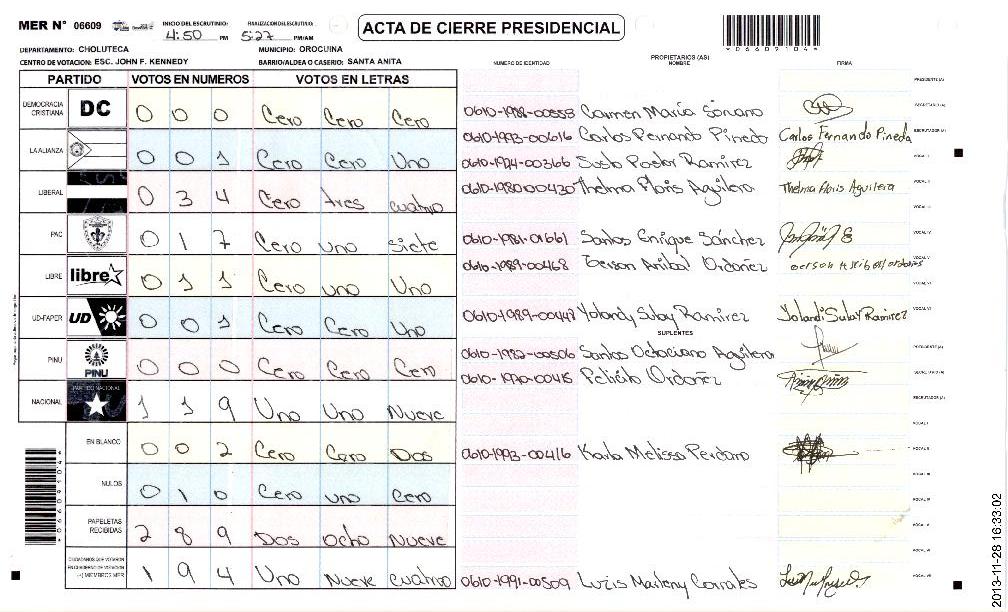 MER N° 06609 INICIO DEL ESCRUTINIO: 4:50 PM FINALIZACION DEL ESCRUTINIO: 5:27 PM/AM
ACTA DE CIERRE PRESIDENCIAL
*06609104*
DEPARTAMENTO: CHOLUTECA MUNICIPIO: OROCUINA
CENTRO DE VOTACION: ESC. JOHN F. KENNEDY BARRIO/ALDEA O CASERIO: SANTA ANITA
NUMERO DE IDENTIDAD PROPIETARIOS (AS) NOMBRE FIRMA
PARTIDO VOTOS EN NUMEROS VOTOS EN LETRAS
PRESIDENTE (A)
DEMOCRACIA CRISTIANA DC 0 0 0 Cero Cero Cero
0610-1988-00553 Carmen María Soriano SECRETARIO (A)
0610-1993-00616 Carlos Fernando Pineda Carlos Fernando Pineda ESCRUTADOR (A)
LA ALIANZA 0 0 1 Cero Cero Uno
0610-1974-00366 Susto Pastor Ramirez VOCAL I
LIBERAL 0 3 4 Cero tres cuatro
0610-1980-00430 Thelma Floris Aguilera Thelma Floris Aguilera VOCAL II
VOCAL III
PAC 0 1 7 Cero uno siete
0610-1981-01661 Santos Enrique Sánchez VOCAL IV
0610-1989-00468 Gerson Anibal Ordoñez VOCAL V
LIBRE libre 0 1 1 Cero uno Uno
VOCAL VI
UD-FAPER UD 0 0 1 Cero Cero Uno
0610-1989-00447 Yolandy Sulay Ramírez Yolandi Sulay Ramirez VOCAL VII
SUPLENTES
PINU PINU 0 0 0 Cero Cero Cero
0610-1982-00506 Santos Octaviano Aguilera PRESIDENTE (A)
0610-1970-00415 Felicito Ordoñez SECRETARIO (A)
NACIONAL PARTIDO NACIONAL 1 1 9 Uno Uno Nueve
ESCRUTADOR (A)
VOCAL I
EN BLANCO 0 0 2 Cero Cero Dos
0610-1993-00416 Karla Melissa Perdomo VOCAL II
VOCAL III
NULOS 0 1 0 Cero uno Cero
VOCAL IV
PAPELETAS RECIBIDAS 2 8 9 Dos ocho Nueve
VOCAL V
VOCAL VI
CIUDADANOS QUE VOTARON EN CUADERNO DE VOTACION (+) MIEMBROS MER 1 9 4 Uno Nueve cuatro
0610-1991-00509 Luris Marleny Corrales VOCAL VII
*06609104*
2013-11-28 16:33:02